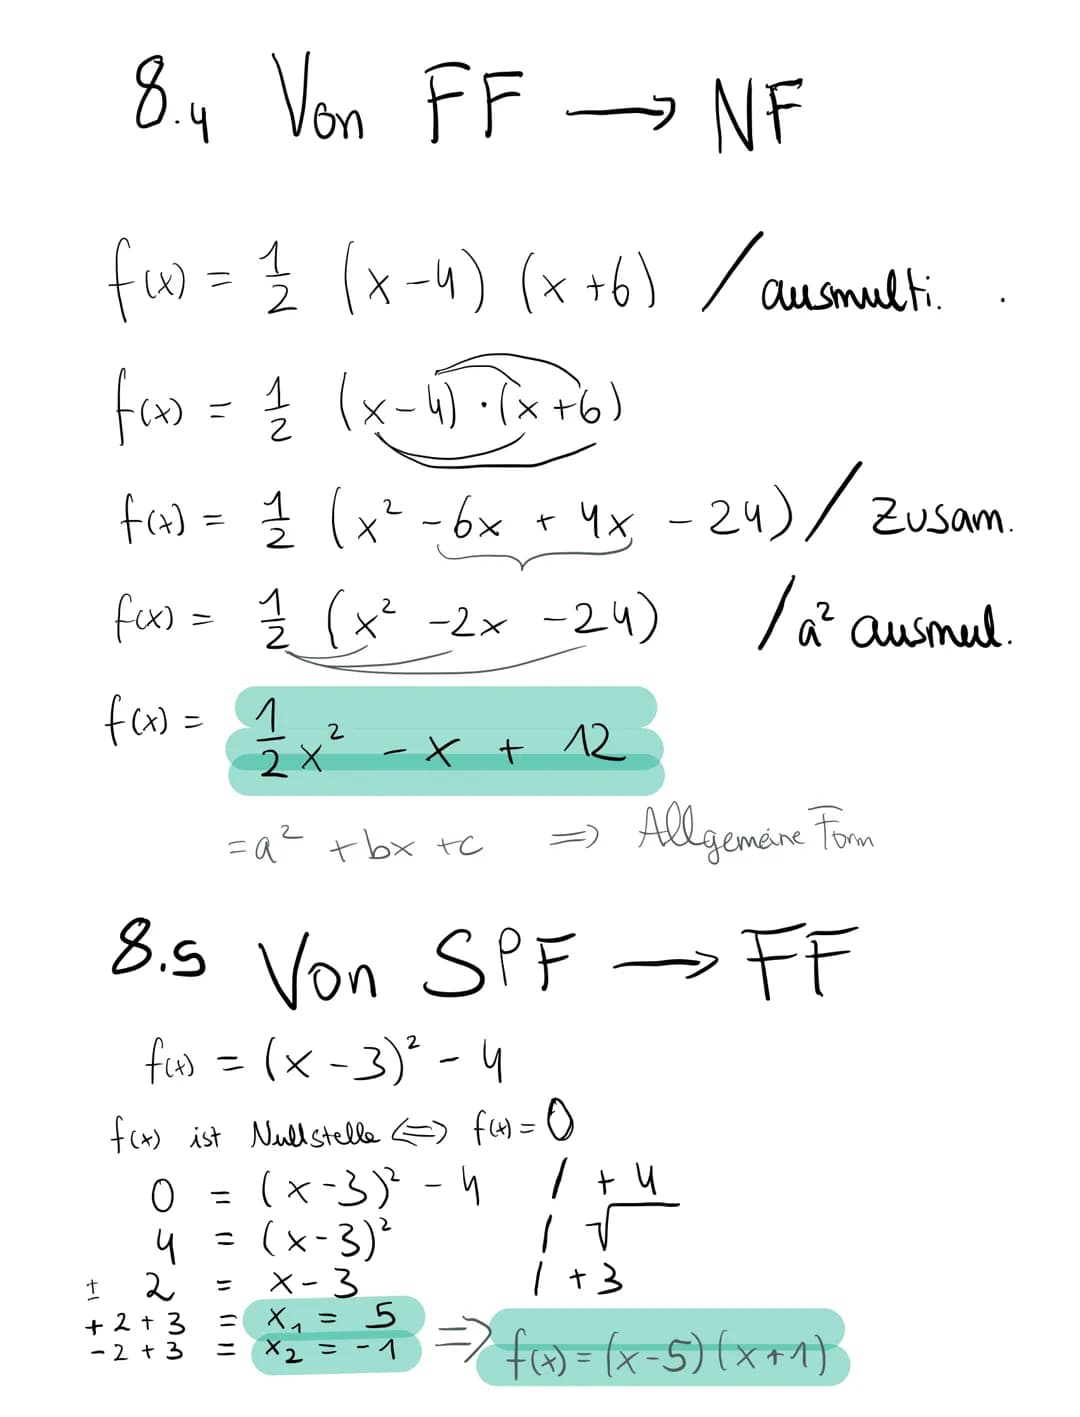 8.4 Von FF → NF
f(x) = 1/2 (x-4) (x+6) / ausmulti.
f(x) = 1/2 (x-4)·(x+6)
f(x) = 1/2 (x² -6x + 4x -24) / Zusam.
f(x) = 1/2 (x² -2x -24) / a² ausmul.
f(x) = 1/2 x² - x + 12
=a² +bx +c ⇒ Allgemeine Form
8.5 Von SPF → FF
f(x) = (x-3)² - 4
f(x) ist Nullstelle ⇔ f(x) = 0
0 = (x-3)² - 4 | + 4
4 = (x-3)² | √
± 2 = x-3 | +3
+2+3 = x₁ = 5
-2+3 = x₂ = -1 ⇒ f(x) = (x-5)(x+1)